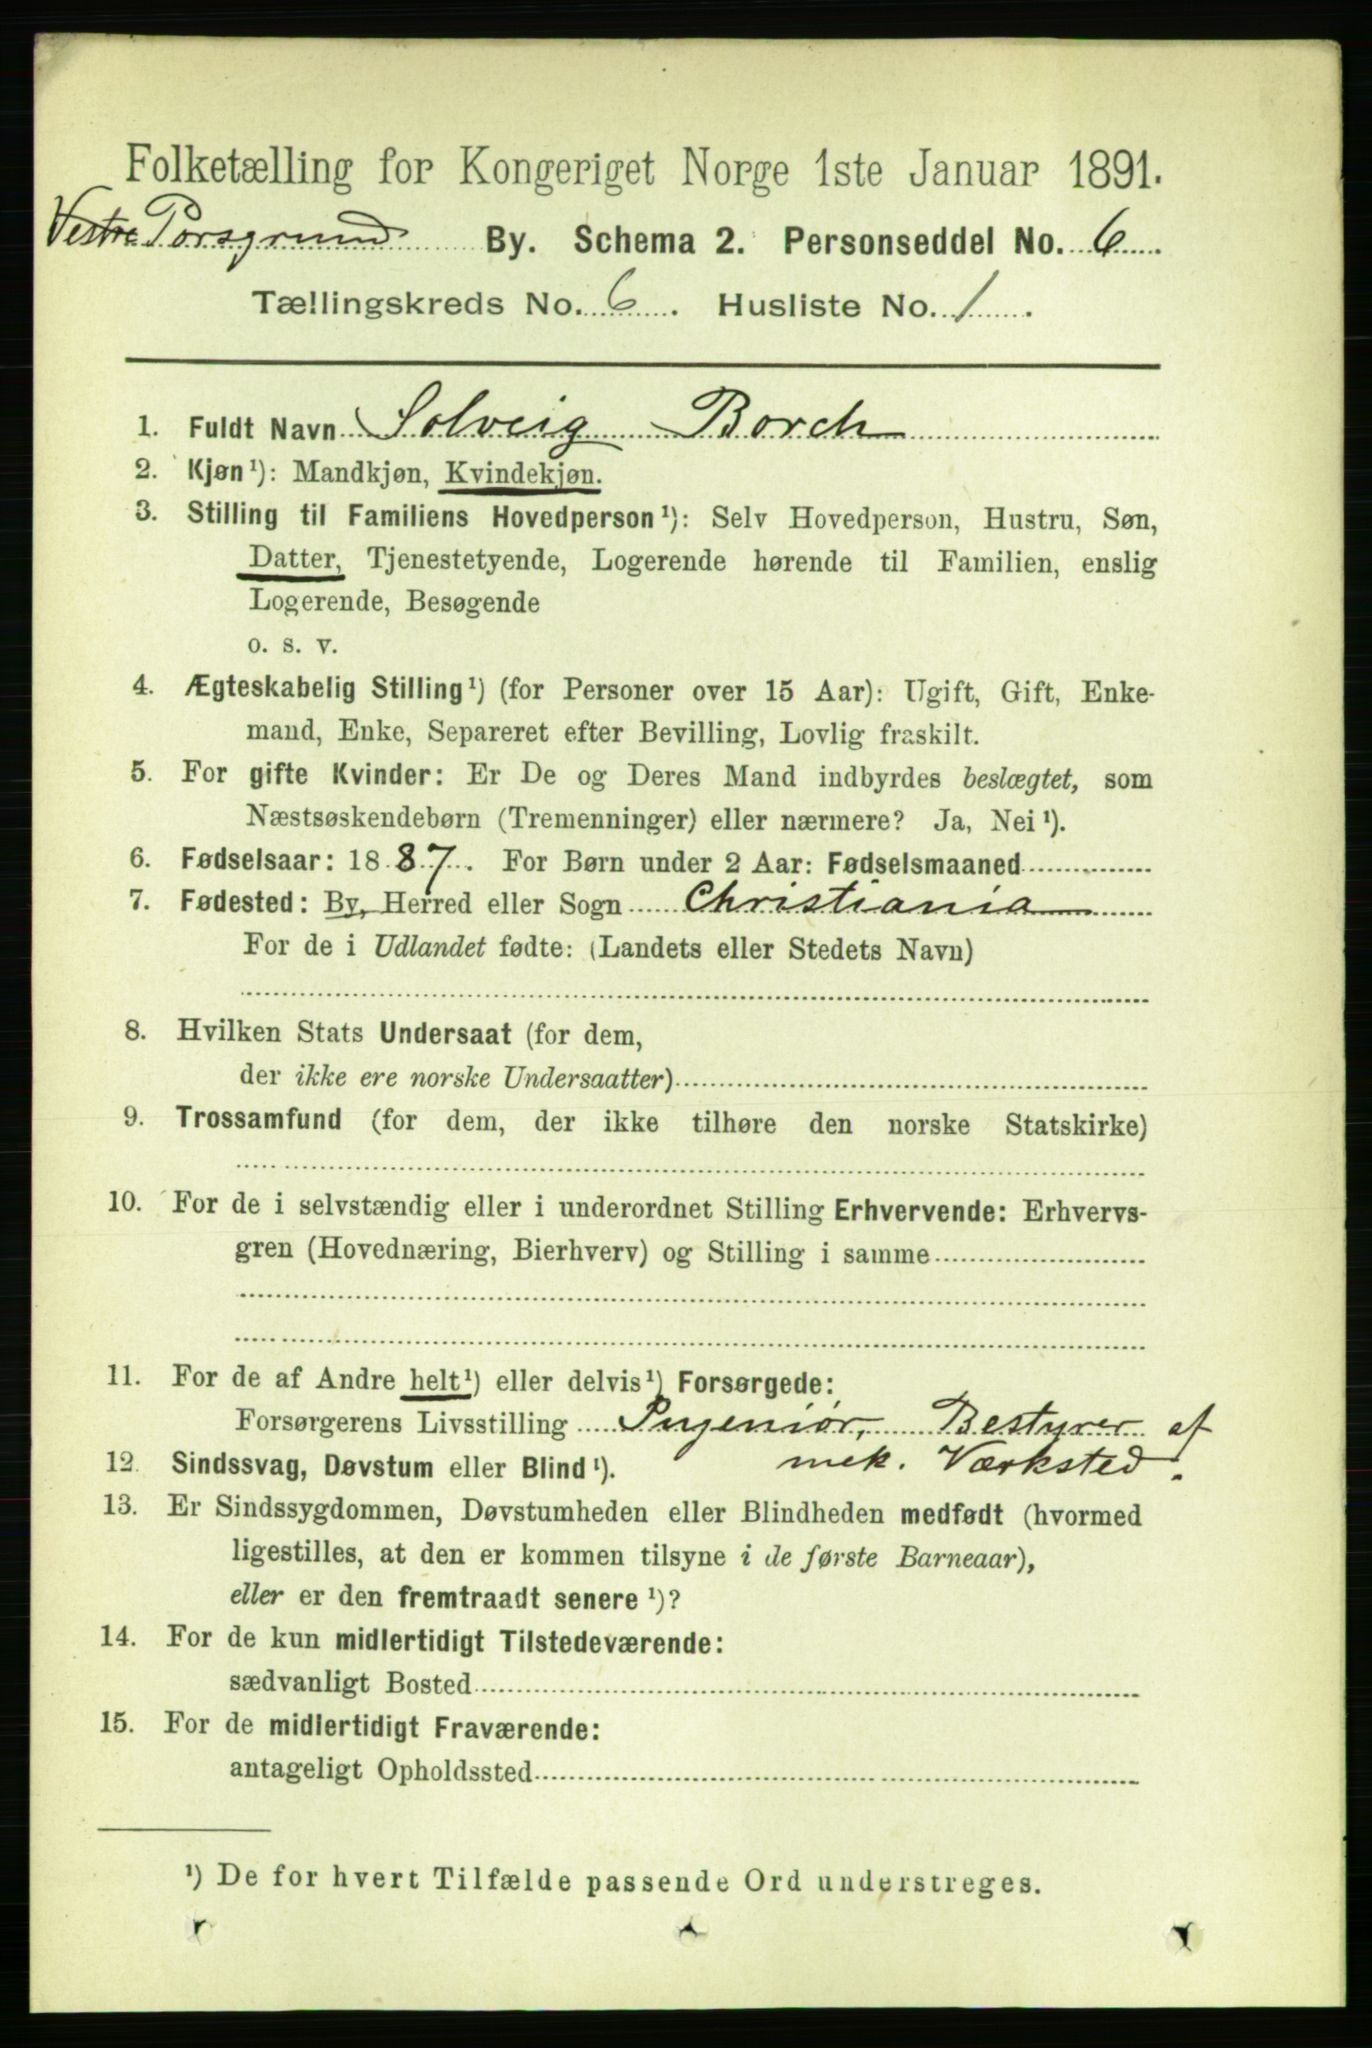 Folketælling for Kongeriget Norge 1ste Januar 1891.
Vestre Porsgrund By. Schema 2. Personseddel No. 6.
Tællingskreds No. 6. Husliste No. 1.
1. Fuldt Navn Solveig Borch
2. Kjøn¹): Mandkjøn, Kvindekjøn.
3. Stilling til Familiens Hovedperson¹): Selv Hovedperson, Hustru, Søn,
Datter, Tjenestetyende, Logerende hørende til Familien, enslig
Logerende, Besøgende
o. s. v.
4. Ægteskabelig Stilling¹) (for Personer over 15 Aar): Ugift, Gift, Enke-
mand, Enke, Separeret efter Bevilling, Lovlig fraskilt.
5. For gifte Kvinder: Er De og Deres Mand indbyrdes beslægtet, som
Næstsøskendebørn (Tremenninger) eller nærmere? Ja, Nei¹).
6. Fødselsaar: 1887. For Børn under 2 Aar: Fødselsmaaned
7. Fødested: By, Herred eller Sogn Christiania
For de i Udlandet fødte: (Landets eller Stedets Navn)
8. Hvilken Stats Undersaat (for dem,
der ikke ere norske Undersaatter)
9. Trossamfund (for dem, der ikke tilhøre den norske Statskirke)
10. For de i selvstændig eller i underordnet Stilling Erhvervende: Erhvervs-
gren (Hovednæring, Bierhverv) og Stilling i samme
11. For de af Andre helt¹) eller delvis¹) Forsørgede:
Forsørgerens Livsstilling Ingeniør, Bestyrer af
mek. Værksted.
12. Sindssvag, Døvstum eller Blind¹).
13. Er Sindssygdommen, Døvstumheden eller Blindheden medfødt (hvormed
ligestilles, at den er kommen tilsyne i de første Barneaar),
eller er den fremtraadt senere¹)?
14. For de kun midlertidigt Tilstedeværende:
sædvanligt Bosted
15. For de midlertidigt Fraværende:
antageligt Opholdssted
¹) De for hvert Tilfælde passende Ord understreges.